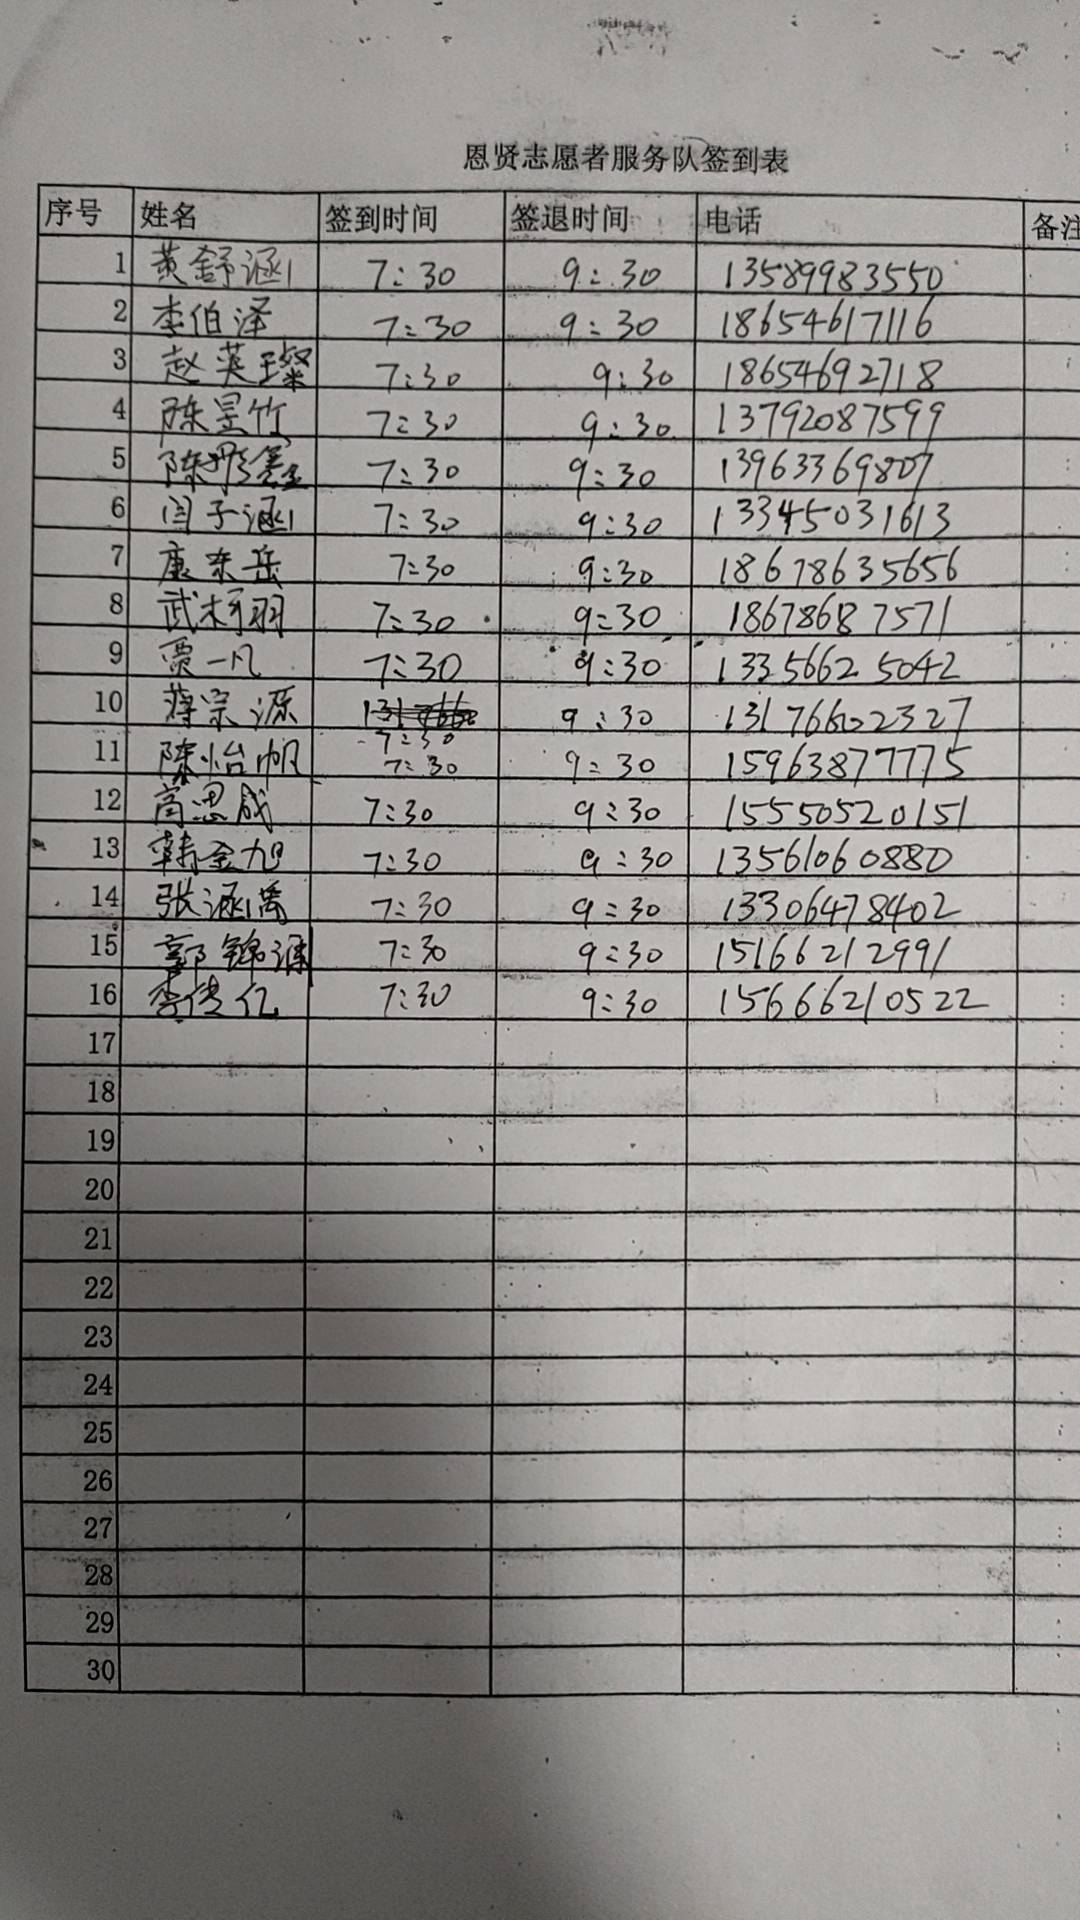 恩贤志愿者服务队签到表
序号 姓名 签到时间 签退时间 电话 备注
1 黄舒涵 7:30 9:30 13589983550
2 李伯泽 7:30 9:30 18654617116
3 赵英璨 7:30 9:30 18654692718
4 陈昱竹 7:30 9:30 13792087599
5 陈彤鑫 7:30 9:30 13963369807
6 闫子涵 7:30 9:30 13345031613
7 康东岳 7:30 9:30 18678635656
8 武杨羽 7:30 9:30 18678687571
9 贾一凡 7:30 9:30 13356625042
10 蒋宗源 7:30 9:30 13176602327
11 陈怡帆 7:30 9:30 15963877775
12 高思成 7:30 9:30 15550520151
13 韩金旭 7:30 9:30 13561060880
14 张涵禹 7:30 9:30 13306478402
15 郭锦源 7:30 9:30 15166212991
16 李俊亿 7:30 9:30 15666210522
17
18
19
20
21
22
23
24
25
26
27
28
29
30